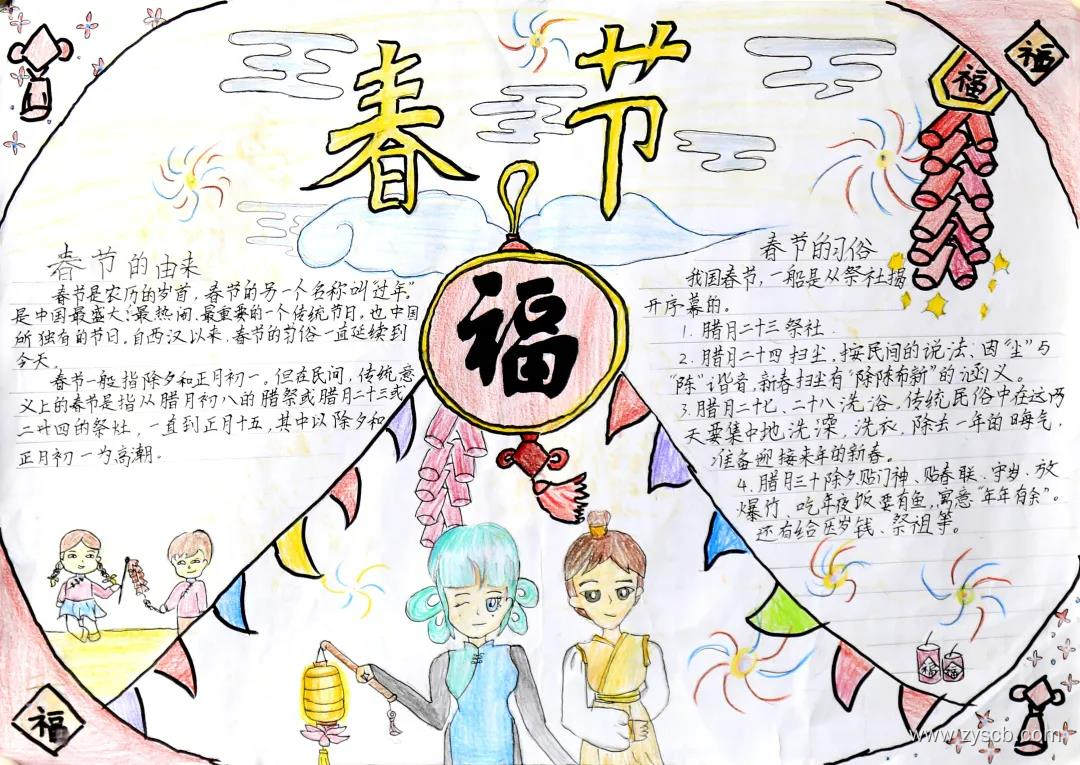 春节
福
福
福
福
福
福
春节的由来
春节是农历的岁首，春节的另一个名称叫"过年"。
是中国最盛大、最热闹、最重要的一个传统节日。也中国
所独有的节日。自西汉以来，春节的习俗一直延续到
今天。
春节一般指除夕和正月初一。但在民间，传统意
义上的春节是指从腊月初八的腊祭或腊月二十三或
二廿四的祭灶，一直到正月十五，其中以除夕和
正月初一为高潮。
春节的习俗
我国春节，一般是从祭社揭
开序幕的。
1. 腊月二十三祭社
2. 腊月二十四扫尘，按民间的说法、因"尘"与
"陈"谐音，新春扫尘有"除陈布新"的涵义。
3. 腊月二十七、二十八洗浴，传统民俗中在这两
天要集中地洗澡，洗衣，除去一年的晦气，
准备迎接来年的新春。
4. 腊月三十除夕，贴门神、贴春联、守岁、放
爆竹、吃年夜饭要有鱼，寓意"年年有余"。
还有给压岁钱、祭祖等。
www.zyscb.com